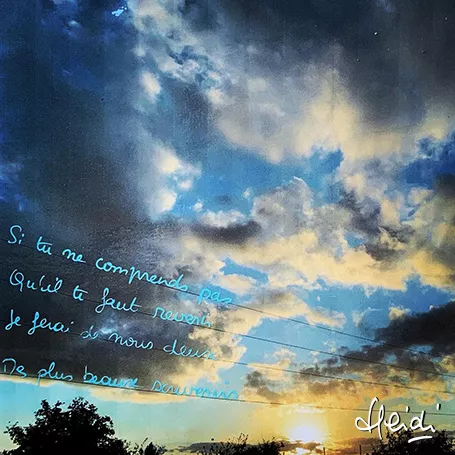 Si tu ne comprends pas
Qu'il te faut revenir
Je ferai de nous deux
Des plus beaux souvenirs
Heidi